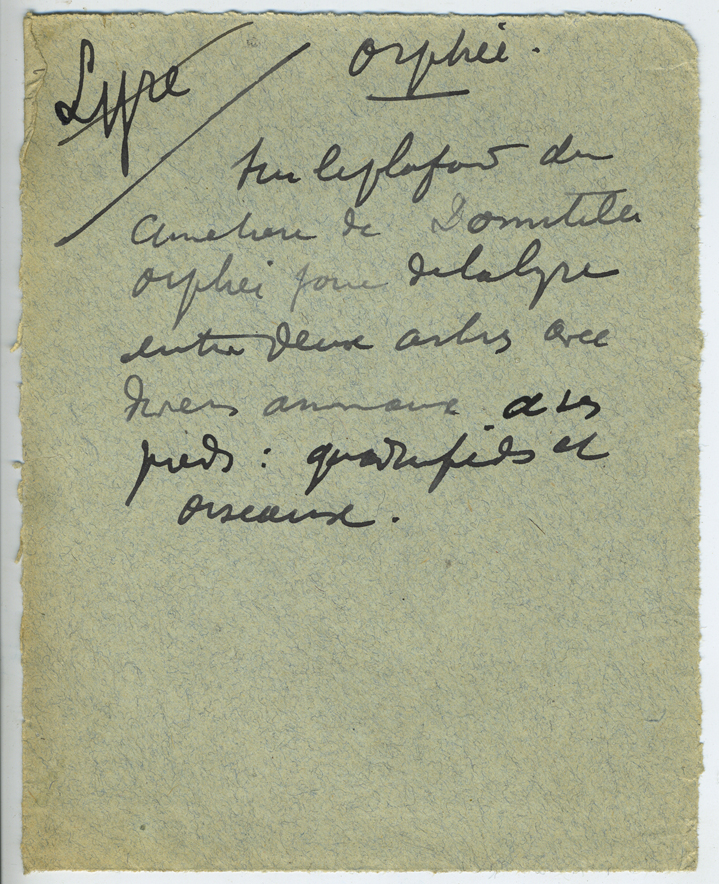 Lyre
Orphée.
Sur le plafond du
cimetière de Domitilla
Orphée joue de la lyre
entre deux arbres avec
divers animaux à ses
pieds : quadrupèdes et
oiseaux.